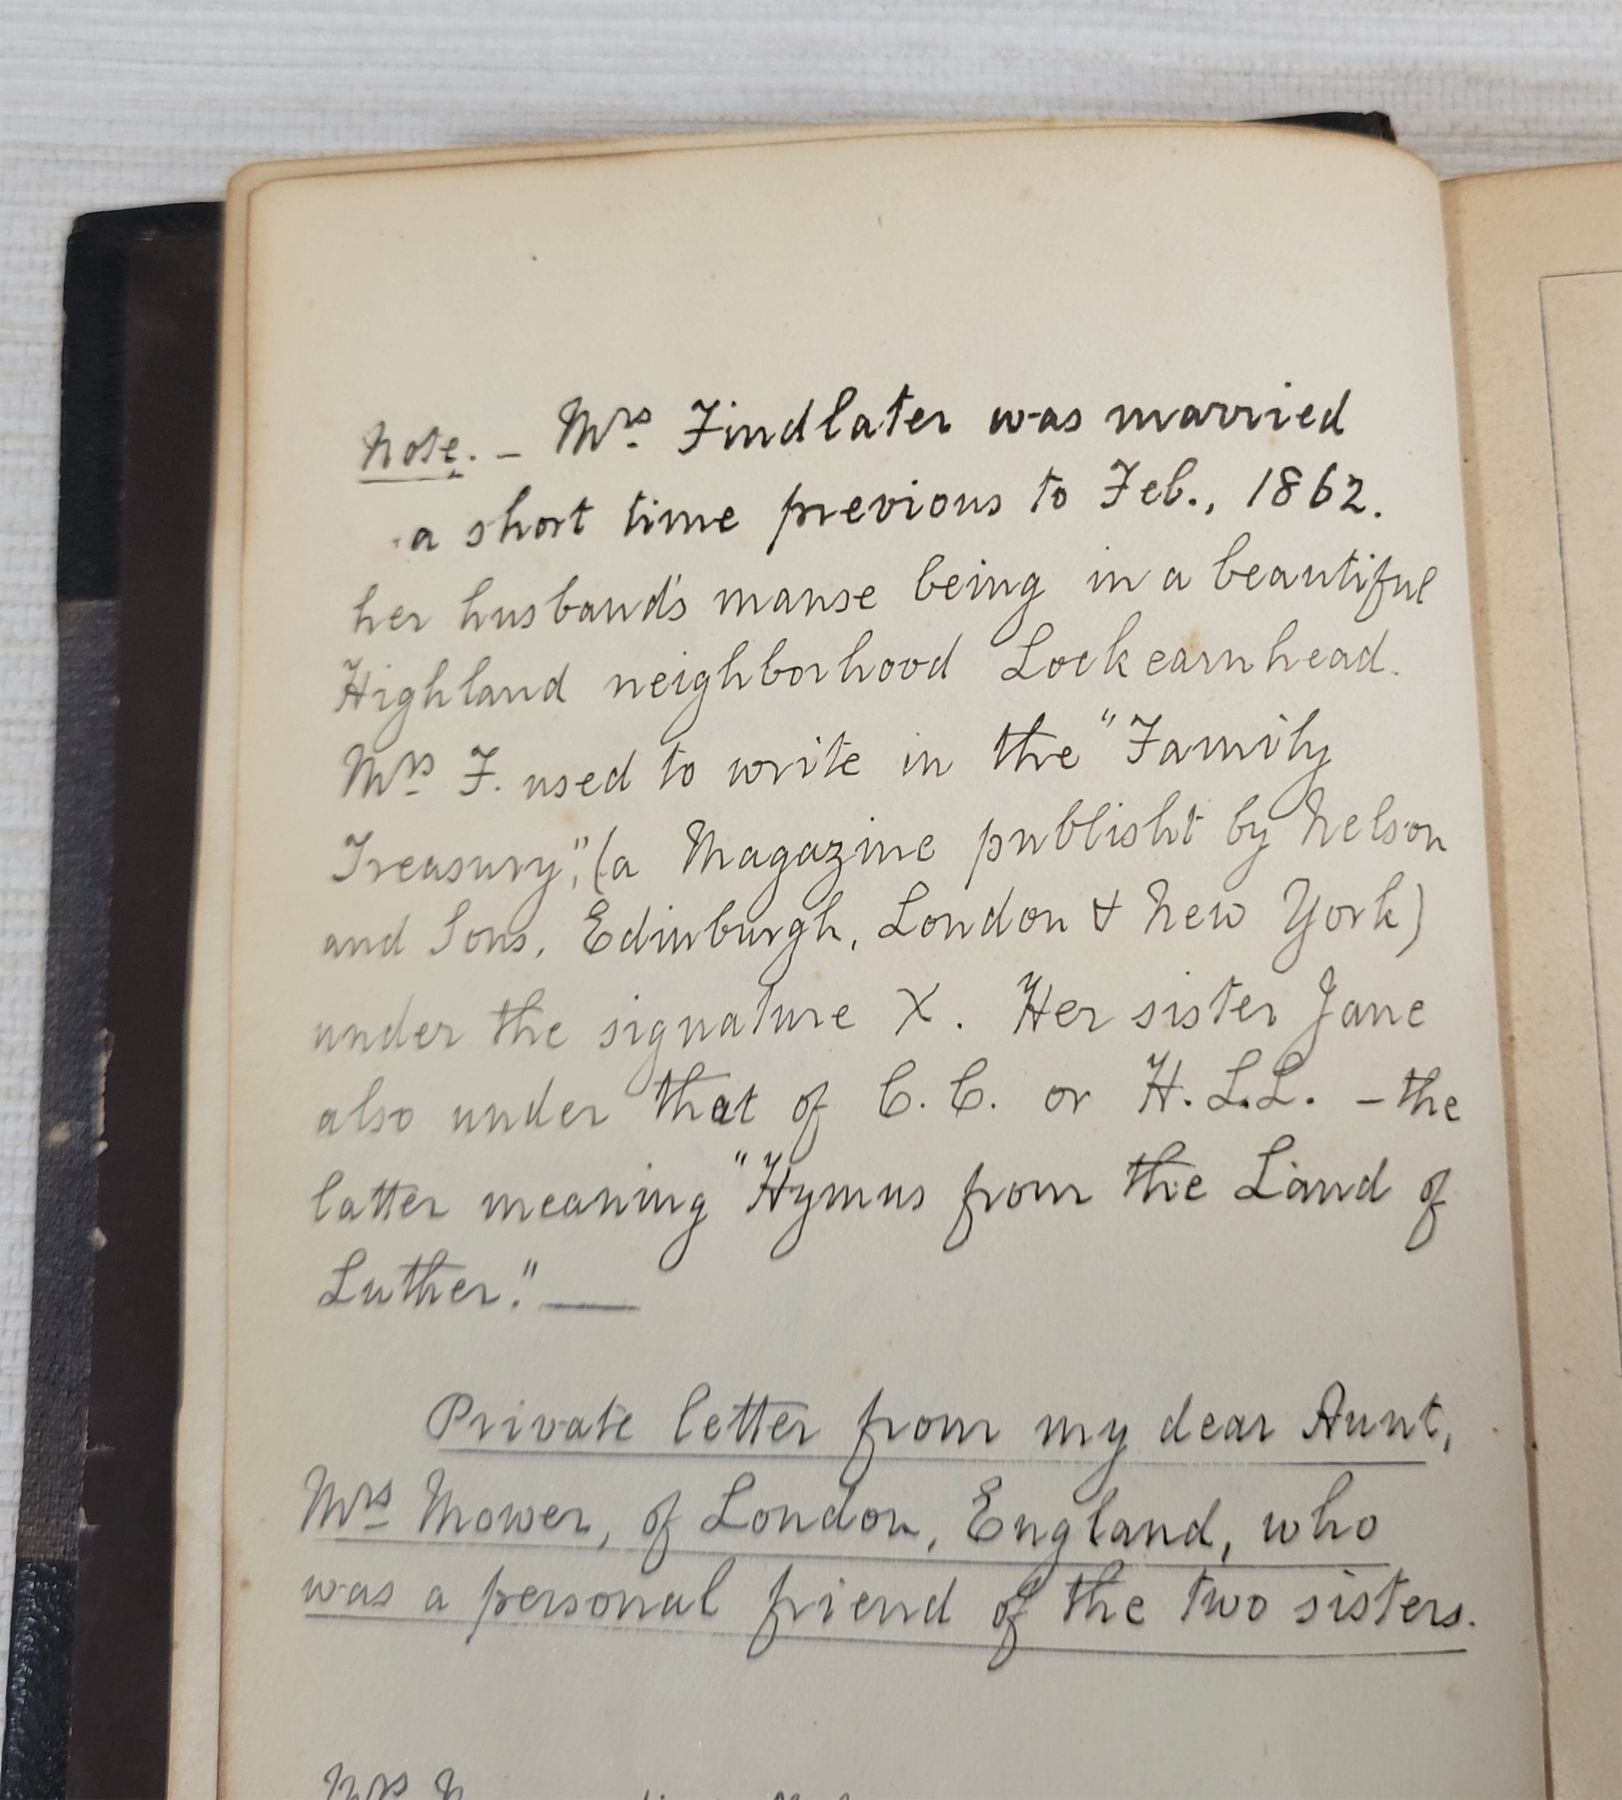 Note. – Mrs. Findlater was married
a short time previous to Feb., 1862.
her husband's manse being in a beautiful
Highland neighborhood Lockearnhead.
Mrs. F. used to write in the "Family
Treasury," (a Magazine publisht by Nelson
and Sons, Edinburgh, London & New York)
under the signature X. Her sister Jane
also under that of C. C. or H. L. L. – the
latter meaning "Hymns from the Land of
Luther." —
Private letter from my dear Aunt,
Mrs. Mower, of London, England, who
was a personal friend of the two sisters.